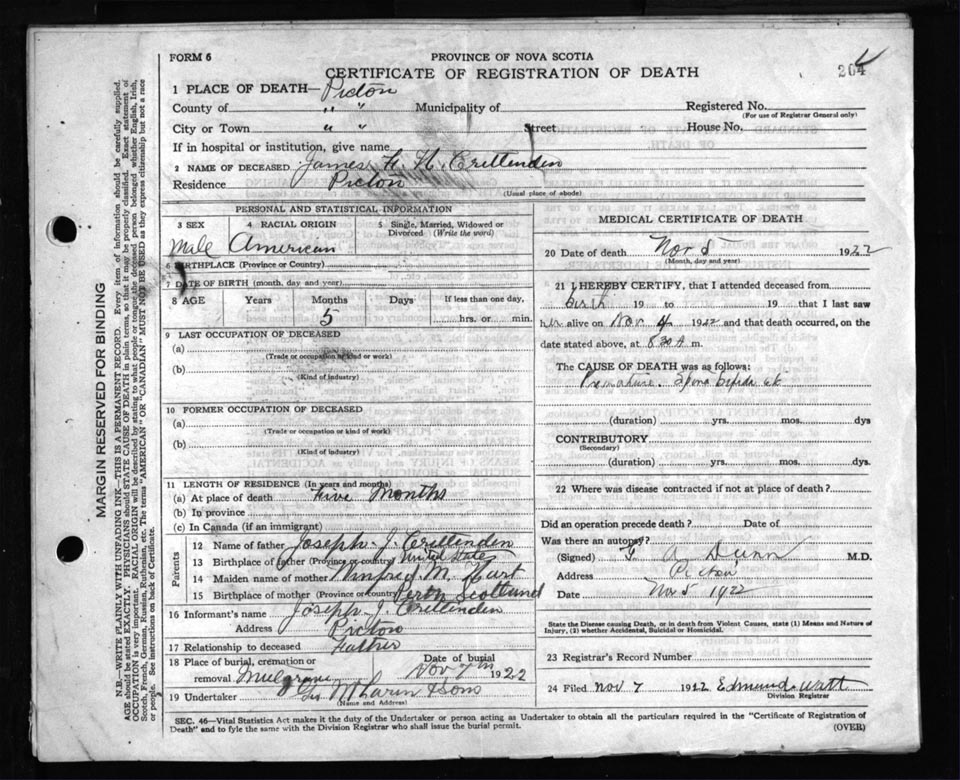 FORM 6
PROVINCE OF NOVA SCOTIA
CERTIFICATE OF REGISTRATION OF DEATH
204
1 PLACE OF DEATH— Pictou
County of " " Municipality of Registered No.
(For use of Registrar General only)
City or Town " " Street House No.
If in hospital or institution, give name
2 NAME OF DECEASED James H. Crittenden
Residence Pictou
(Usual place of abode)
PERSONAL AND STATISTICAL INFORMATION
3 SEX 4 RACIAL ORIGIN 5 Single, Married, Widowed or Divorced (Write the word)
Male American
6 BIRTHPLACE (Province or Country)
7 DATE OF BIRTH (month, day, and year)
8 AGE Years Months Days If less than one day,
5 hrs. or min.
9 LAST OCCUPATION OF DECEASED
(a)
(Trade or occupation or kind of work)
(b)
(Kind of industry)
10 FORMER OCCUPATION OF DECEASED
(a)
(Trade or occupation or kind of work)
(b)
(Kind of industry)
11 LENGTH OF RESIDENCE (In years and months)
(a) At place of death Five Months
(b) In province
(c) In Canada (if an immigrant)
Parents
12 Name of father Joseph J. Crittenden
13 Birthplace of father (Province or country) United States
14 Maiden name of mother Winfred M. Hart
15 Birthplace of mother (Province or Country) Perth Scotland
16 Informant's name Joseph J. Crittenden
Address Pictou
17 Relationship to deceased Father
18 Place of burial, cremation or removal Mulgrave Date of burial Nov 7th 1922
19 Undertaker & Sons
(Name and Address)
MEDICAL CERTIFICATE OF DEATH
20 Date of death Nov 5 1922
(Month, day and year)
21 I HEREBY CERTIFY, that I attended deceased from
birth 19 to 19 that I last saw
him alive on Nov 4 1922 and that death occurred, on
the date stated above, at 8 30 A m.
The CAUSE OF DEATH was as follows:
Premature. Spina bifida etc
(duration) yrs. mos. dys
CONTRIBUTORY
(Secondary)
(duration) yrs. mos. dys.
22 Where was disease contracted if not at place of death?
Did an operation precede death? Date of
Was there an autopsy?
(Signed) A Dunn M.D.
Address Pictou
Date Nov 5 1922
State the Disease causing Death, or in death from Violent Causes, state (1) Means and Nature of
Injury, (2) whether Accidental, Suicidal or Homicidal.
23 Registrar's Record Number
24 Filed Nov 7 1922 Edmund Watt
Division Registrar
SEC. 46—Vital Statistics Act makes it the duty of the Undertaker or person acting as Undertaker to obtain all the particulars required in the "Certificate of Registration of
Death" and to fyle the same with the Division Registrar who shall issue the burial permit.
(OVER)
MARGIN RESERVED FOR BINDING
N.B.—WRITE PLAINLY WITH UNFADING INK—THIS IS A PERMANENT RECORD. Every item of information should be carefully supplied.
AGE should be stated EXACTLY. PHYSICIANS should STATE CAUSE OF DEATH in plain terms, so that it may be properly classified. Exact statement of
OCCUPATION is very important. RACIAL ORIGIN will be described by stating to what people or tongue the deceased person belonged whether English, Irish,
Scotch, French, German, Russian, Ruthenian, etc. The terms "AMERICAN" OR "CANADIAN" MUST NOT BE USED as they express citizenship but not a race
or people. See instructions on back of Certificate.